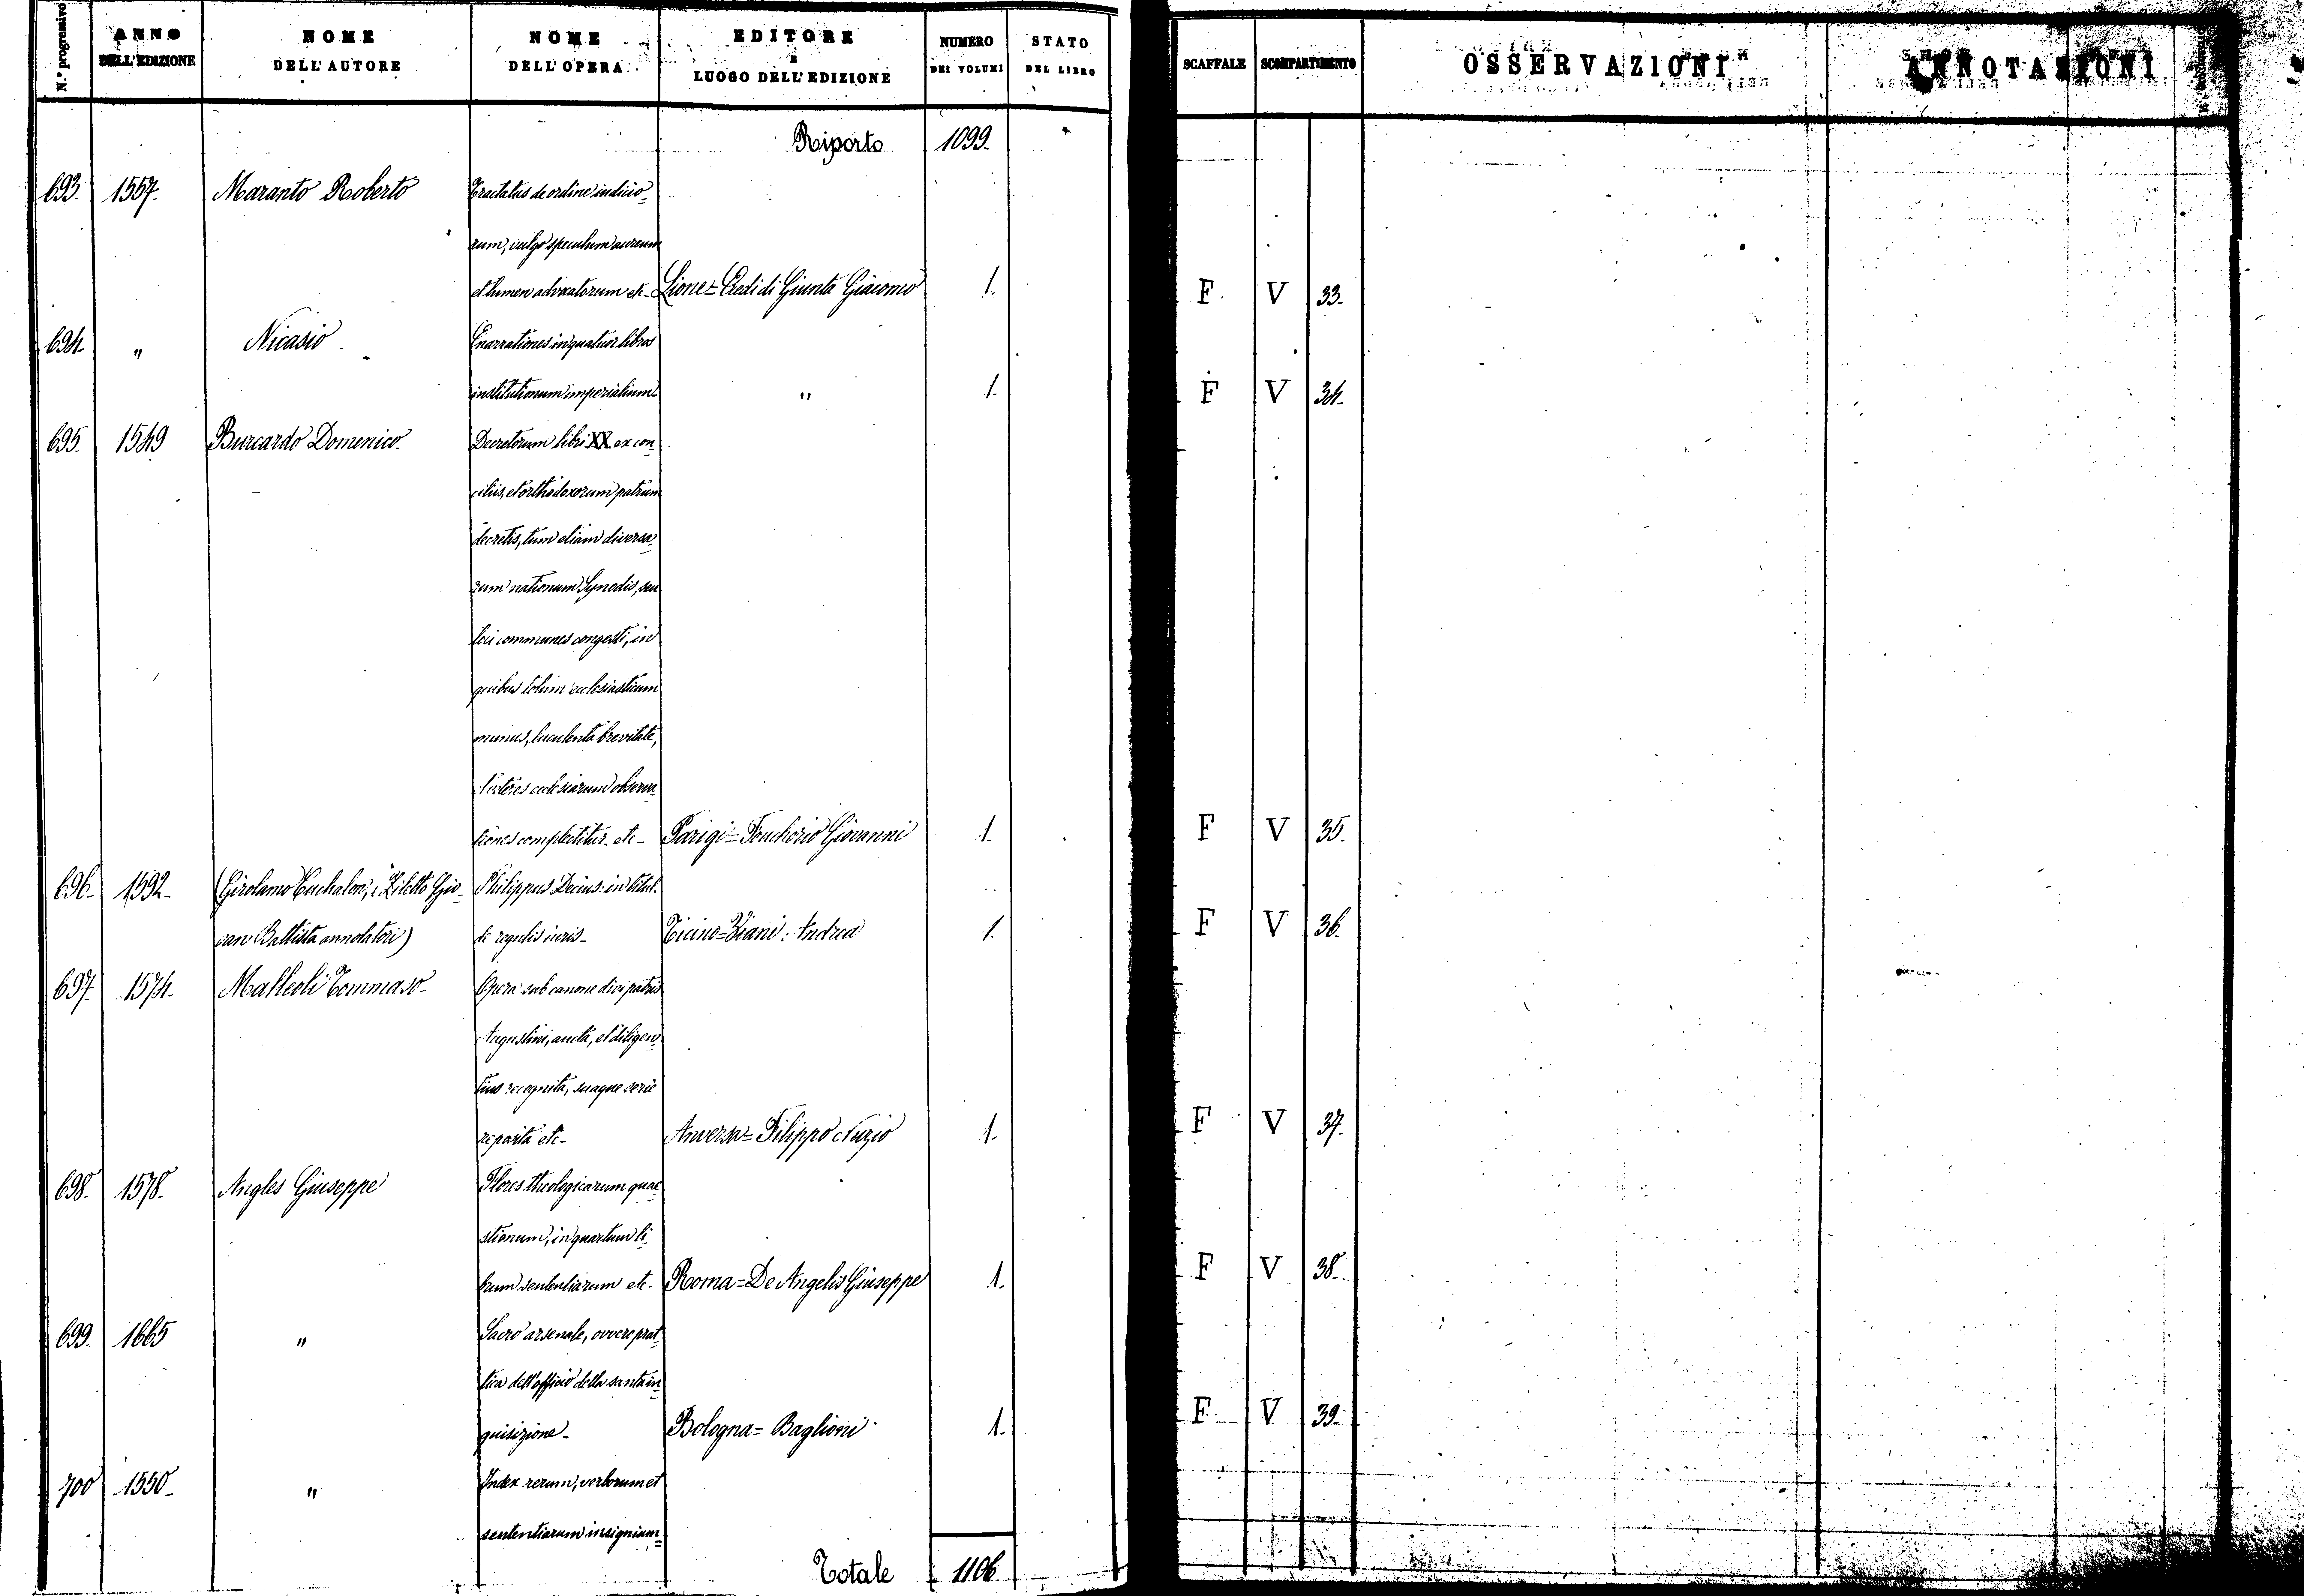 N.° progressivo
ANNO DELL'EDIZIONE
NOME DELL'AUTORE
NOME DELL'OPERA
EDITORE E LUOGO DELL'EDIZIONE
NUMERO DEI VOLUMI
STATO DEL LIBRO
SCAFFALE
SCOMPARTIMENTO
OSSERVAZIONI
ANNOTAZIONI
Riporto 1099.
693. 1557. Maranto Roberto Tractatus de ordine iudicio-
rum, vulgo speculum aureum
et lumen advocatorum etc- Lione = Eredi di Giunta Giacomo 1. F V 33.
694. " Nicasio Enarrationes in quatuor libros
institutionum imperialium " 1. F V 34.
695. 1549 Burcardo Domenico. Decretorum libri XX ex con-
ciliis, et orthodoxorum patrum
decretis, tum etiam diversa-
rum nationum Synodis, seu
loci communes congesti, in
quibus totum ecclesiasticum
munus, luculenta brevitate,
veteres ecclesiarum observa-
tiones complectitur- etc- Parigi = Foucherio Giovanni 1. F V 35.
696. 1592- (Girolamo Cuchalon, e Ziletto Gio- Philippus Decius: in titul.
van Battista annotatori) de regulis iuris- Ticino = Viani: Andrea 1. F V 36.
697. 1574. Malleoli Tommaso- Opera sub canone divi patris
Augustini, aucta, et diligen-
tius recognita, suaque serie
reposita etc- Anversa = Filippo Nuzio 1. F V 37.
698. 1578. Angles Giuseppe Flores theologicarum quae-
stionum, in quartum li-
brum sententiarum etc. Roma = De Angelis Giuseppe 1. F V 38.
699. 1665 " Sacro arsenale, ovvero prat-
tica dell'officio della santa in-
quisizione- Bologna = Baglioni 1. F V 39.
700 1550- " Index rerum, verborum et
sententiarum insignium-
Totale 1106.